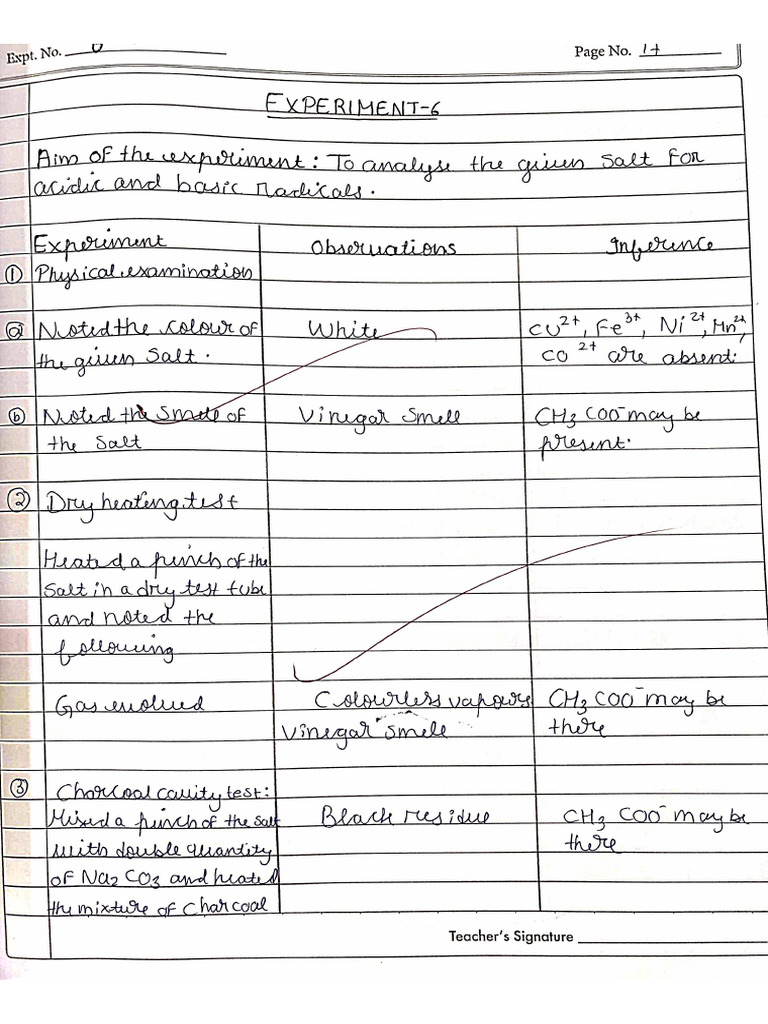 Expt. No. 6 Page No. 17
EXPERIMENT-6
Aim of the experiment: To analyse the given salt for
acidic and basic Radicals.
Experiment Observations Inference
① Physical examination
ⓐ Noted the colour of White Cu²⁺, Fe³⁺, Ni²⁺, Mn²⁺,
the given salt. Co²⁺ are absent.
ⓑ Noted the smell of Vinegar smell CH₃COO⁻ may be
the salt present.
② Dry heating test
Heated a pinch of the
salt in a dry test tube
and noted the
following
Gas evolved Colourless vapours CH₃COO⁻ may be
Vinegar smell there
③ Charcoal cavity test:
Mixed a pinch of the salt Black residue CH₃COO⁻ may be
with double quantity there
of Na₂CO₃ and heated
the mixture of Charcoal
Teacher's Signature